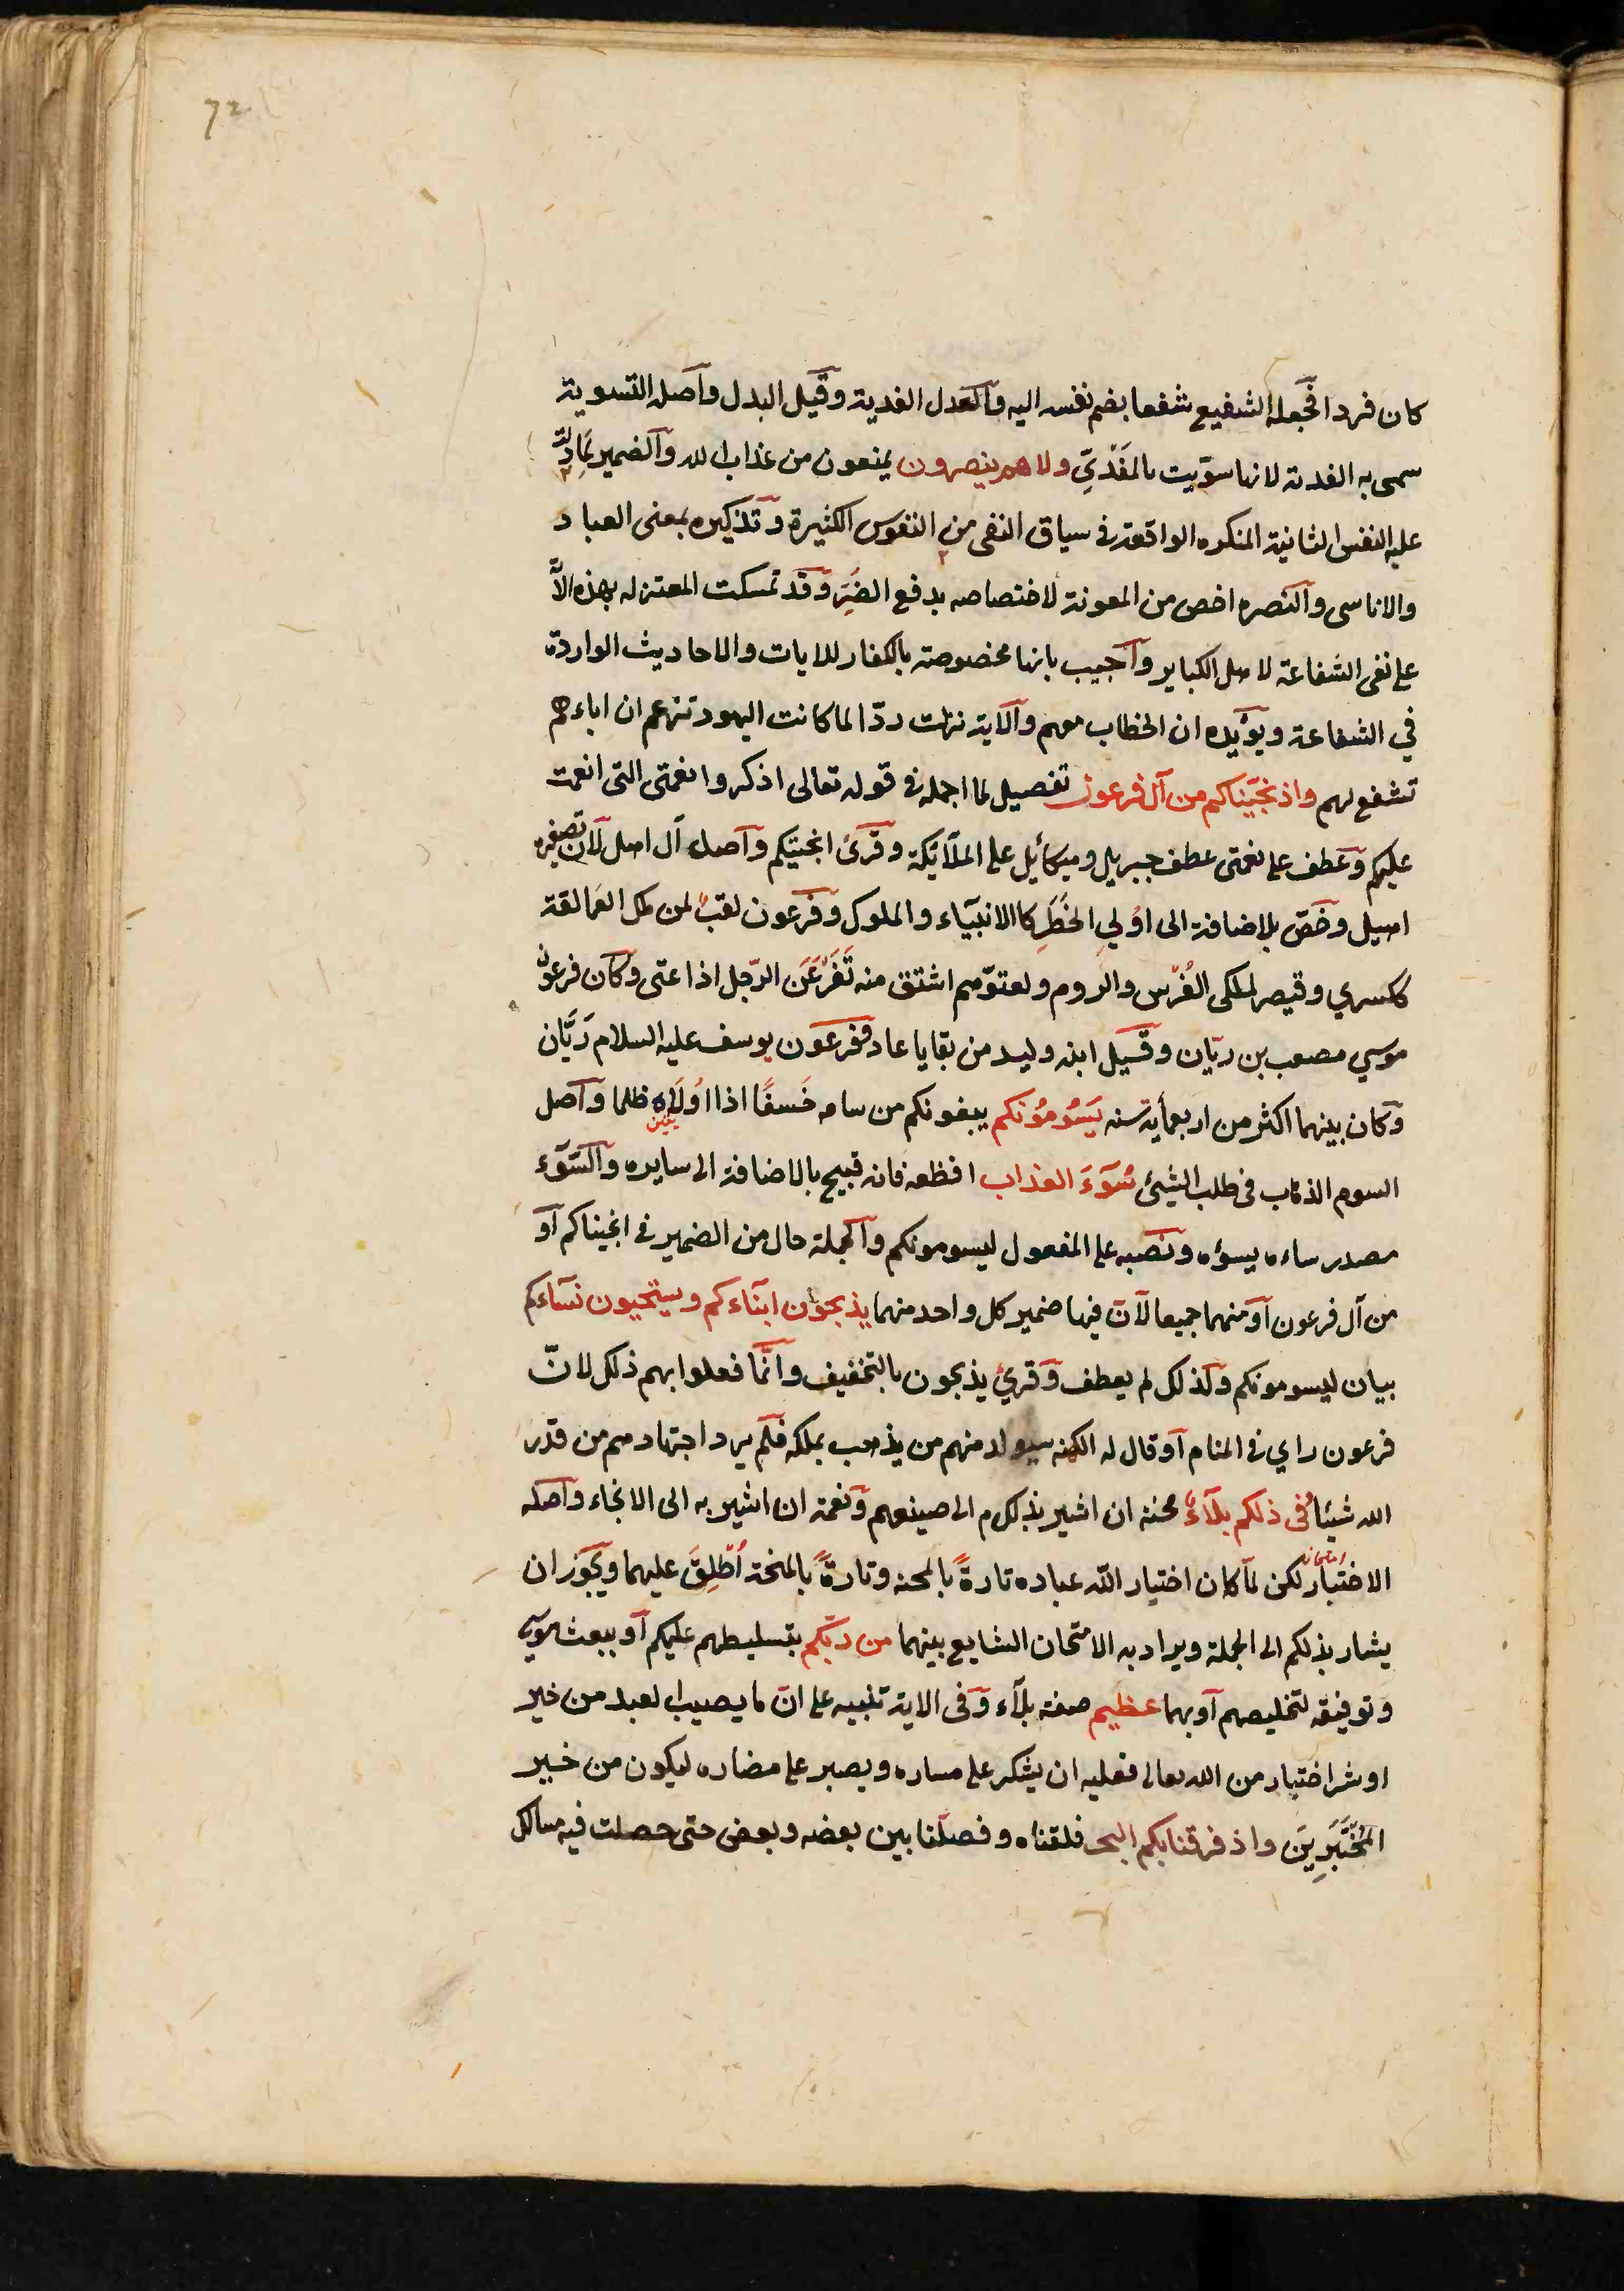 72
كان فردا فجعله الشفيع شفعا بضم نفسه اليه والعدل الفدية وقيل البدل واصله التسوية
سمى به الفدية لانها سوّيت بالمَفْدِيّ ولا هم ينصرون يمنعون من عذاب الله والضمير لما دلّت
عليه النفس الثانية المنكره الواقعة فى سياق النفى من النفوس الكثيرة وتذكيره بمعنى العباد
والاناسى والنصره اخص من المعونة لاختصاصه بدفع الضَرِّ وقد تمسكت المعتزله بهذه الآ
على نفى الشفاعة لاهل الكباير واجيب بانها مخصوصة بالكفار للايات والاحاديث الواردة
في الشفاعة ويؤيده ان الخطاب معهم والآية نزلت ردّا لما كانت اليهود تزعم ان اباءهم
تشفع لهم واذ نجّيناكم من آل فرعون تفصيل لما اجمله فى قوله تعالى اذكروا نعمتى التى انعمت
عليكم وعطف على نعمتى عطف جبريل وميكائيل على الملآئكة وقرئ انجيتكم واصل آل اهل لان تصغيره
اهيل وخصّ بلاضافة الى اوُلي الخَطَرِ كاالانبيآء والملوك وفرعون لقبٌ لمن ملك العمالقة
ككسري وقيصر لملكى الفُرْس والروم ولعتوّهم اشتق منه تَفَرْعَنَ الرّجل اذا عتى وكان فرعون
موسي مصعب بن ريّان وقيل ابنه وليد من بقايا عاد وفرعون يوسف عليه السلام رَيَّان
وكان بينهما اكثر من اربعمأية سنه يَسُومُونكم يبغونكم من سامه خَسفًا اذا اوُلَاه ظلما واصل
السوم الذهاب فى طلب الشيئ سُوٓءَ العذاب افظعه فانه قبيح بالاضافة الى سايره والسّوٓء
مصدر ساءه يسؤه ونصبه على المفعول ليسومونكم والجملة حال من الضمير فى انجيناكم او
من آل فرعون او منهما جميعا لانّ فيها ضمير كل واحد منهما يذبحون ابنآءكم ويستحيون نسآءكم
بيان ليسومونكم ولذلك لم يعطف وقرئ يذبحون بالتخفيف وانّما فعلوا بهم ذلك لانّ
فرعون راي فى المنام او قال له الكهنه سيولد منهم من يذهب بملكه فلم يرد اجتهادهم من قدر
الله شيئا وفى ذلكم بلآءٌ محنة ان اشير بذلكم الى صنيعهم ونعمة ان اشير به الى الانجاء واصله
الاختبار لكن لما كان اختبار الله عباده تارةً بالمحنه وتارةً بالمنحة اُطْلِقَ عليهما ويجوز ان
امتحان
يشار بذلكم الى الجملة ويراد به الامتحان الشايع بينهما من ربّكم بتسليطهم عليكم او ببعث موسى
وتوفيقه لتخليصهم او بهما عظيم صفة بلآء وفى الاية تنبيه على انّ ما يصيب العبد من خير
او شر اختبار من الله تعالى فعليه ان يشكر على مساره ويصبر على مضاره ليكون من خير
المُخْتَبَرِينَ واذ فرقنا بكم البحر فلقناه وفصلنا بين بعضه وبعض حتى حصلت فيه مسالك